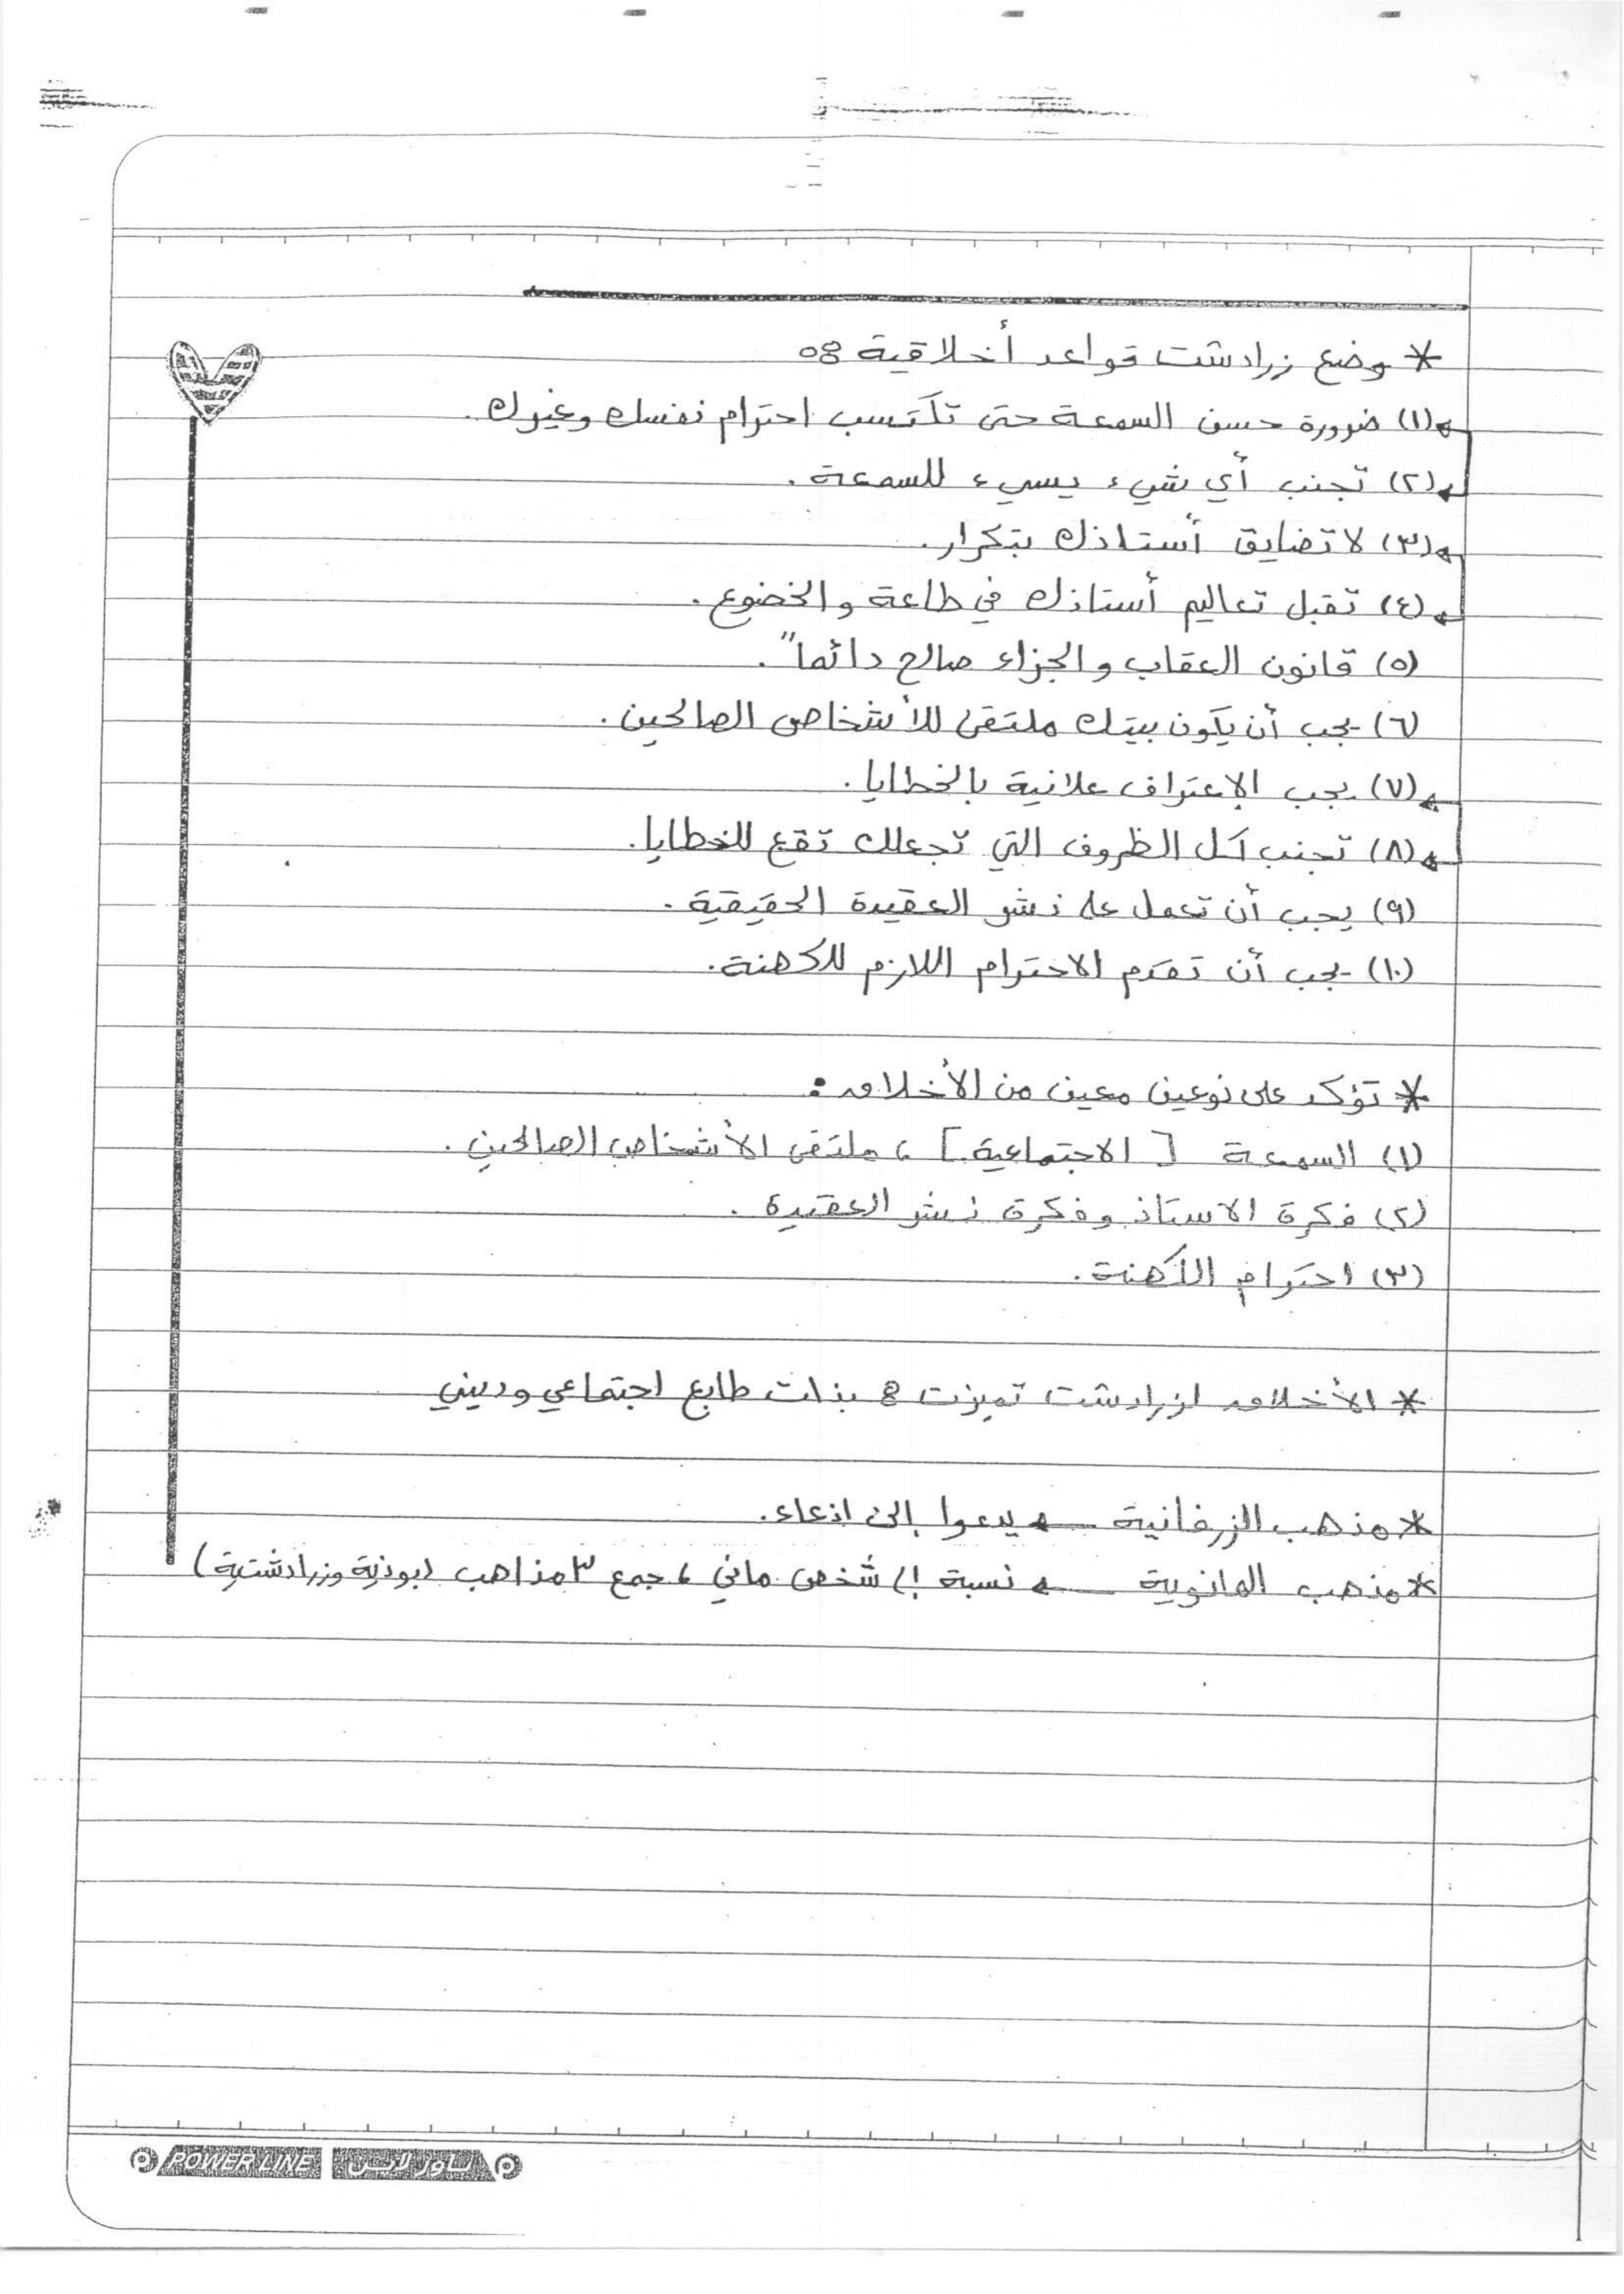 * وضع زرادشت قواعد أخلاقية :
(١) ضرورة حسن السمعة حتى تكتسب احترام نفسك وغيرك.
(٢) تجنب أي شيء يسيء للسمعة.
(٣) لا تضايق أستاذك بتكرار.
(٤) تقبل تعاليم أستاذك في طاعة والخضوع.
(٥) قانون العقاب والجزاء صالح دائماً.
(٦) يجب أن يكون بيتك ملتقى للأشخاص الصالحين.
(٧) يجب الإعتراف علانية بالخطايا.
(٨) تجنب كل الظروف التي تجعلك تقع للخطايا.
(٩) يجب أن تعمل على نشر العقيدة الحقيقية.
(١٠) يجب أن تقدم الاحترام اللازم للكهنة.
* تؤكد على نوعين معين من الأخلاق :
(١) السمعة [الاجتماعية] ، ملتقى الأشخاص الصالحين.
(٢) فكرة الاستاذ وفكرة نشر العقيدة.
(٣) احترام الكهنة.
* الأخلاق لزرادشت تميزت : بذات طابع اجتماعي وديني
* مذهب الزرفانية ← يدعوا إلى ادعاء.
* مذهب المانوية ← نسبة إلى شخص ماني ، جمع ٣ مذاهب (بوذية وزرادشتية)
POWER LINE باور لاين